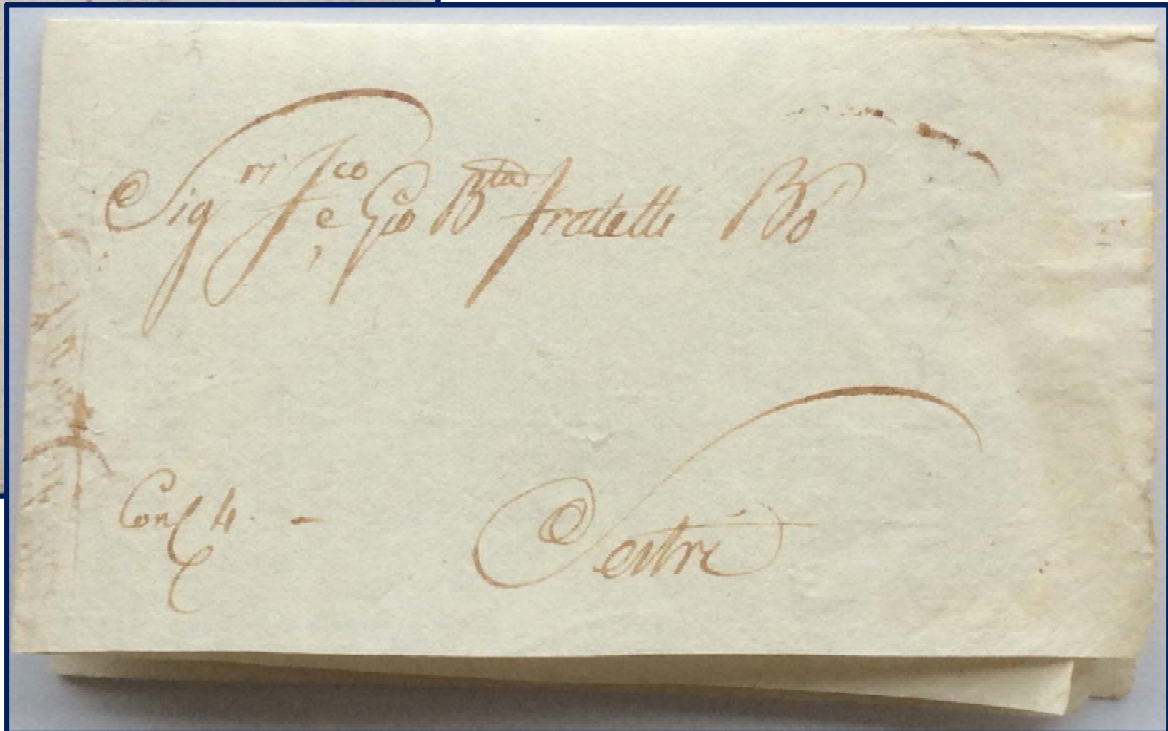 Sig.ri Fco e Gio Bta fratelli Bó
Con
Sestri